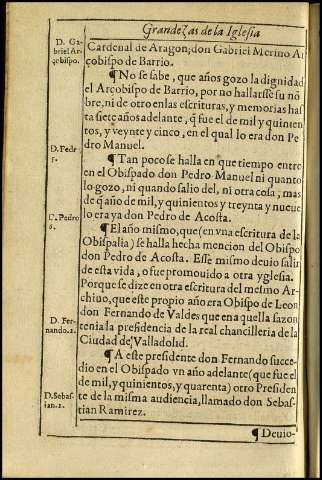 Grandezas de la Iglesia
D. Ga-
briel Ar-
çobispo.
Cardenal de Aragon; don Gabriel Merino Ar
çobispo de Barrio.
¶No se sabe, que años gozo la dignidad
el Arçobispo de Barrio, por no hallarsse su nõ
bre, ni de otro en las escrituras, y memorias has
ta siete años adelante, q̃ fue el de mil y quinien
tos, y veynte y cinco, en el qual lo era don Pe
dro Manuel.
D. Pedr
¶Tan poco se halla en que tiempo entro
en el Obispado don Pedro Manuel ni quanto
lo gozo, ni quando salio del, ni otra cosa; mas
de q̃ año de mil, y quinientos y treynta y nueue
lo era ya don Pedro de Acosta.
D. Pedro
¶El año mismo, que (en vna escritura de la
Obispalia) se halla hecha mencion del Obispo
don Pedro de Acosta. Esse mismo deuio salir
de esta vida, o fue promouido a otra yglesia.
Porque se dize en otra escritura del mesmo Ar-
chiuo, que este propio año era Obispo de Leon
D. Fer-
nando.2.
don Fernando de Valdes que en aquella sazon
tenia la presidencia de la real chancilleria de la
Ciudad de Valladolid.
¶A este presidente don Fernando succe-
dio en el Obispado vn año adelante (que fue el
de mil, y quinientos, y quarenta) otro Presiden
D. Sebas-
tian.1.
te de la misma audiencia, llamado don Sebas-
tian Ramirez.
¶Deuio-